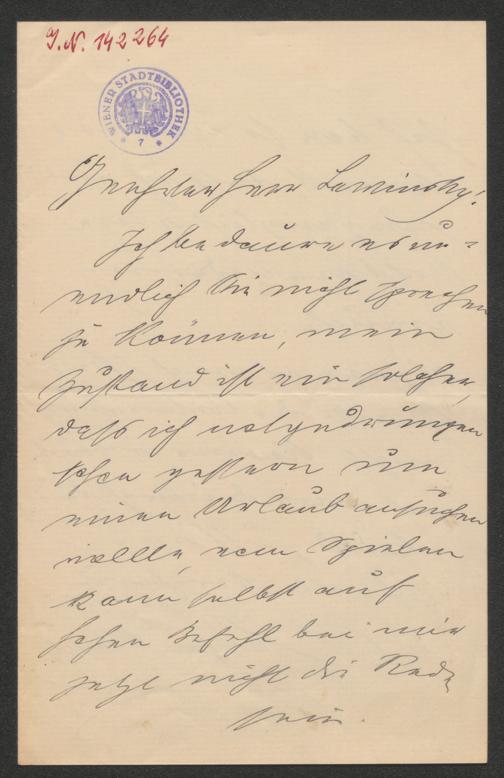 J.N. 142264
WIENER STADTBIBLIOTHEK
7
Geehrter Herr Lewinsky!
Ich bedaure es un=
endlich Sie nicht sprechen
zu können, mein
Zustand ist ein solcher,
dass ich notgedrungen
schon gestern um
einen Urlaub ansuchen
wollte, vom Spielen
kann selbst auf
hohen Befehl bei mir
jetzt nicht die Rede
sein.